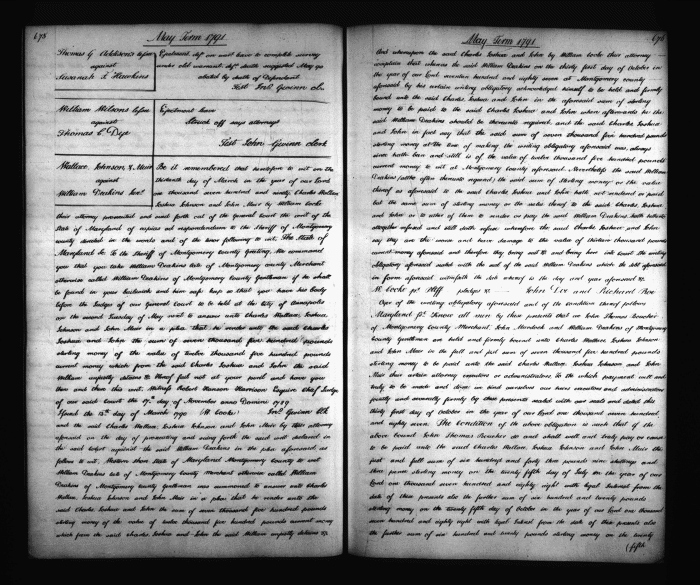 675
May Term 1791.
Thomas G Addisons lessee
against
Susanah T Hawkins
Ejectment dfn on will have to complete survey
under old warrant dfts death suggested May 90
abated by death of Defendant
Test Jno Gwinn clk
William Wilsons lessee
against
Thomas C Dye
Ejectment have
Struck off says attorneys
Test John Gwinn clerk
Wallace, Johnson & Muir
against
William Deakins Junr.
Be it remembered that heretofore to wit on the
thirteenth day of March in the year of our Lord
one thousand seven hundred and ninety Charles Wallace
Joshua Johnson and John Muir by William Cooke
their attorney prosecuted and sued forth out of the General Court the writ of the
State of Maryland of capias ad respondendum to the Sheriff of Montgomery
county directed in the words and of the tenor following to wit. The State of
Maryland to the Sheriff of Montgomery County Greeting. We command
you that you take William Deakins late of Montgomery County Merchant
otherwise called William Deakins of Montgomery County gentleman if he shall
be found in your bailiwick and him safe keep so that you have his body
before the Judges of our General Court to be held at the City of Annapolis
on the second Tuesday of May next to answer unto Charles Wallace, Joshua
Johnson and John Muir in a plea that he render unto the said Charles
Joshua and John the sum of seven thousand five hundred pounds
sterling money of the value of twelve thousand five hundred pounds
current money which from the said Charles Joshua and John the said
William unjustly detains &c Hereof fail not at your peril and have you
then and there this writ. Witness Robert Hanson Harrison Esquire Chief Judge
of our said Court the day of November anno Domini 1789
Issued the 13th day of March 1790 W Cooke Jno. Gwinn Clk
and the said Charles Wallace Joshua Johnson and John Muir by their attorney
aforesaid on the day of prosecuting and suing forth the said writ declared in
the said Court against the said William Deakins in the plea aforesaid as
follows to wit. Western Shore State of Maryland Montgomery County to wit
William Deakins late of Montgomery County Merchant otherwise called William
Deakins of Montgomery County gentleman was summoned to answer unto Charles
Wallace, Joshua Johnson and John Muir in a plea that he render unto the
said Charles Joshua and John the sum of seven thousand five hundred pounds
sterling money of the value of twelve thousand five hundred pounds current money
which from the said Charles Joshua and John the said William unjustly detains &c.
May Term 1791.
676
And whereupon the said Charles Joshua and John by William Cooke their attorney
complain that whereas the said William Deakins on the thirty first day of October in
the year of our Lord seventeen hundred and eighty seven at Montgomery county
aforesaid by his certain writing obligatory acknowledged himself to be held and firmly
bound unto the said Charles Joshua and John in the aforesaid sum of sterling
money to be paid to the said Charles Joshua and John when afterwards he the
said William Deakins should be thereunto required, and the said Charles Joshua
and John in fact say that the said sum of seven thousand five hundred pounds
sterling money at the time of making the writing obligatory aforesaid was, always
since hath been and still is of the value of twelve thousand five hundred pounds
current money to wit at Montgomery County aforesaid. Nevertheless the said William
Deakins (altho often thereunto required) the said sum of sterling money or the value
thereof as aforesaid to the said Charles Joshua and John hath not rendered or paid
but the same sum of sterling money or the value thereof to the said Charles Joshua
and John or to either of them to render or pay the said William Deakins hath hitherto
altogether refused and still doth refuse wherefore the said Charles Joshua and John
say they are the worse and have damage to the value of thirteen thousand pounds
current money aforesaid and therefore they bring suit &c and bring here into Court the writing
obligatory aforesaid sealed with the seal of the said William Deakins which the debt aforesaid
in form aforesaid witnesseth the date whereof is the day and year aforesaid &c.
W Cooke for Plff pledges &c John Doe and Richard Roe
Copy of the writing obligatory aforesaid and of the condition thereof follows
Maryland fs. Know all men by these presents that we John Thomas Boucher
of Montgomery County Merchant, John Murdock and William Deakins of Montgomery
County Gentleman are held and firmly bound unto Charles Wallace Joshua Johnson
and John Muir in the full and just sum of seven thousand five hundred pounds
sterling money to be paid unto the said Charles Wallace, Joshua Johnson and John
Muir their certain attorney executors or administrators, to the which payment well and
truly to be made and done we bind ourselves our heirs executors and administrators
jointly and severally firmly by these presents sealed with our seals and dated this
thirty first day of October in the year of our Lord one thousand seven hundred
and eighty seven. The Condition of the above obligation is such that if the
above bound John Thomas Boucher do and shall well and truly pay or cause
to be paid unto the said Charles Wallace, Joshua Johnson and John Muir the
just and full sum of six hundred and forty three pounds nine shillings and
three pence sterling money on the twenty fifth day of July in the year of our
Lord one thousand seven hundred and eighty eight with legal Interest from the
date of these presents also the further sum of six hundred and twenty pounds
sterling money, on the twenty fifth day of October in the year of our Lord one thousand
seven hundred and eighty eight with legal Interest from the date of these presents also
the further sum of six hundred and twenty pounds sterling money on the twenty
(fifth